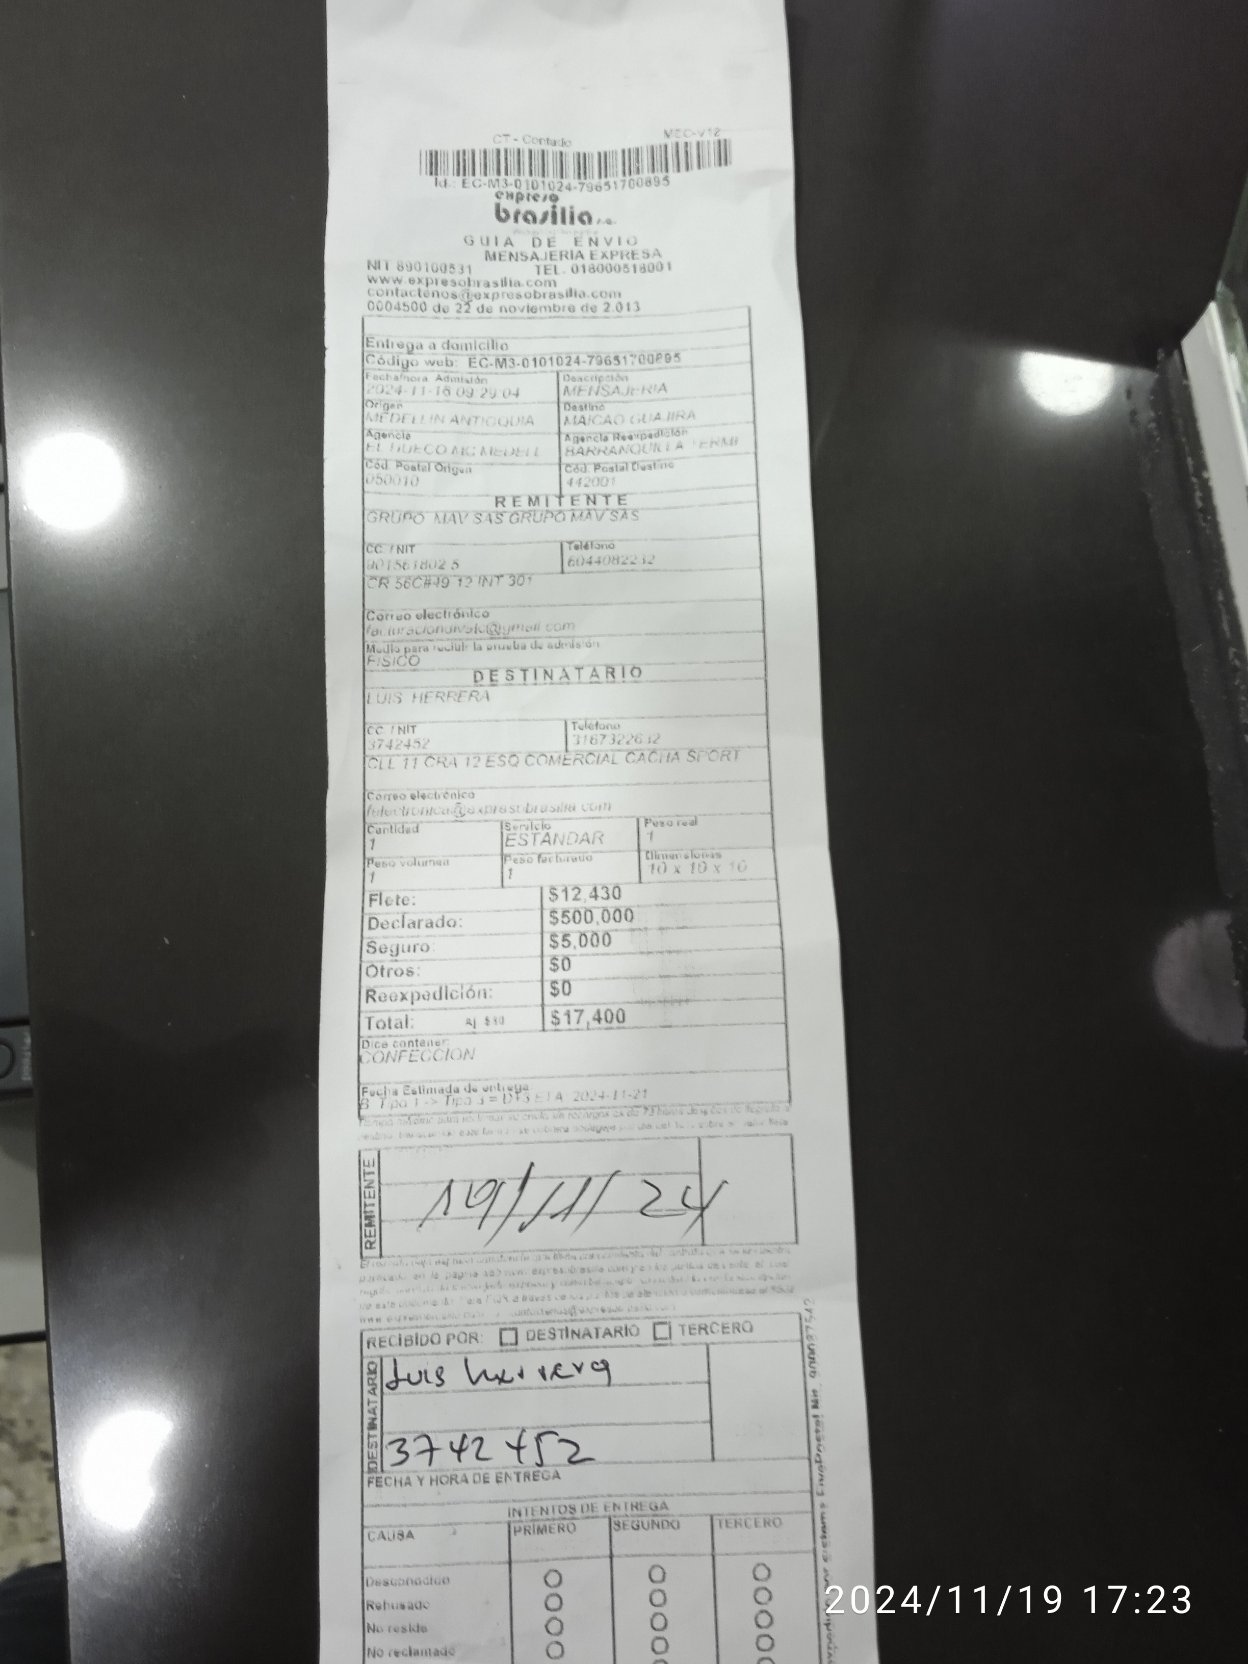 CT - Contado MEC-V12
Id.: EC-M3-0101024-79651700895
expreso
brasilia s.a.
GUIA DE ENVIO
MENSAJERIA EXPRESA
NIT 890100531 TEL. 018000518001
www.expresobrasilia.com
contactenos@expresobrasilia.com
0004500 de 22 de noviembre de 2.013
Entrega a domicilio
Código web: EC-M3-0101024-79651700895
Fecha/hora Admisión Descripción
2024-11-16 09:29:04 MENSAJERIA
Origen Destino
MEDELLIN ANTIOQUIA MAICAO GUAJIRA
Agencia Agencia Reexpedición
EL HUECO MC MEDELL BARRANQUILLA TERMI
Cód. Postal Origen Cód. Postal Destino
050010 442001
REMITENTE
GRUPO MAV SAS GRUPO MAV SAS
CC / NIT Teléfono
901561802 5 6044082232
CR 56C#49 12 INT 301
Correo electrónico
Medio para recibir la prueba de admisión
FISICO
DESTINATARIO
LUIS HERRERA
CC / NIT Teléfono
3742452 3167322632
CLL 11 CRA 12 ESQ COMERCIAL CACHA SPORT
Correo electrónico
Cantidad Servicio Peso real
1 ESTANDAR 1
Peso volumen Peso facturado Dimensiones
1 1 10 x 10 x 10
Flete: $12,430
Declarado: $500,000
Seguro: $5,000
Otros: $0
Reexpedición: $0
Total: Aj $30 $17,400
Dice contener:
CONFECCION
Fecha Estimada de entrega
B Tipo 1 -> Tipo 3 = D+3 ETA 2024-11-21
REMITENTE
19/11/24
RECIBIDO POR: DESTINATARIO TERCERO
DESTINATARIO
Luis Herrera
3742452
FECHA Y HORA DE ENTREGA
INTENTOS DE ENTREGA
CAUSA PRIMERO SEGUNDO TERCERO
Desconocido
Rehusado
No reside
No reclamado
2024/11/19 17:23